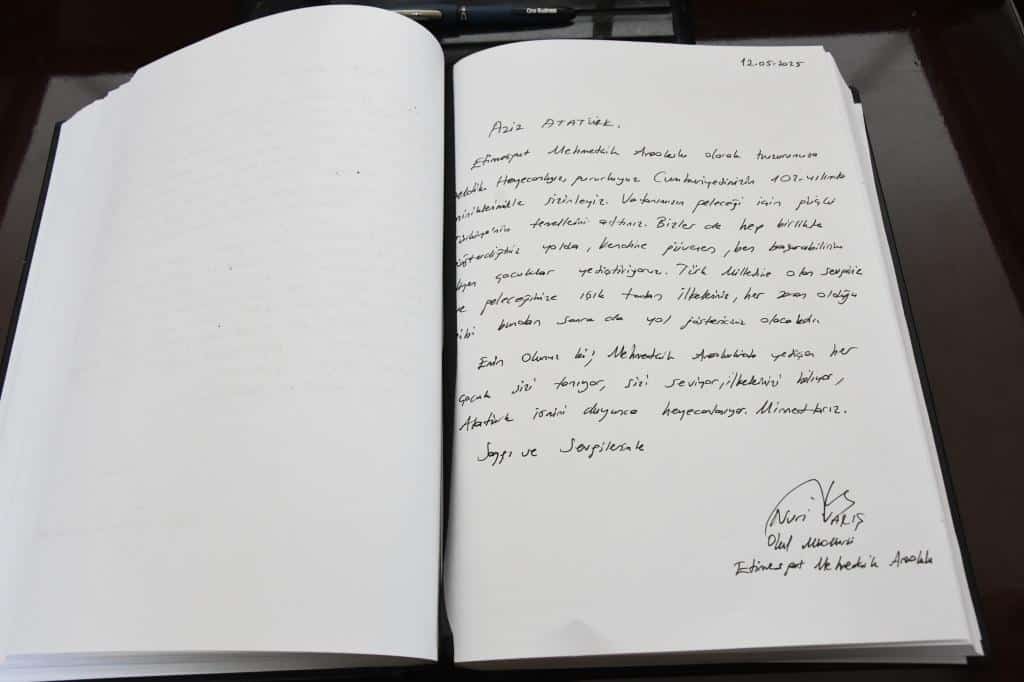 One Business
12.05.2025
Aziz ATATÜRK.
Etimesgut Mehmetçik Anaokulu olarak huzurunuza
geldik. Heyecanlıyız, gururluyuz Cumhuriyetinizin 102. yılında
miniklerimizle sizinleyiz. Vatanımızın geleceği için güçlü
Türkiye'nin temellerini attınız. Bizler de hep birlikte
gösterdiğiniz yolda, kendine güvenen, ben başarabilirim
diyen çocuklar yetiştiriyoruz. Türk Milletine olan sevginiz
ve geleceğimize ışık tutan ilkeleriniz, her zaman olduğu
gibi bundan sonra da yol göstericimiz olacaktır.
Emin Olunuz ki; Mehmetçik Anaokulunda yetişen her
çocuk sizi tanıyor, sizi seviyor, ilkelerinizi biliyor,
Atatürk ismini duyunca heyecanlanıyor. Minnettarız.
Saygı ve Sevgilerimle
Nuri VARIŞ
Okul Müdürü
Etimesgut Mehmetçik Anaokulu